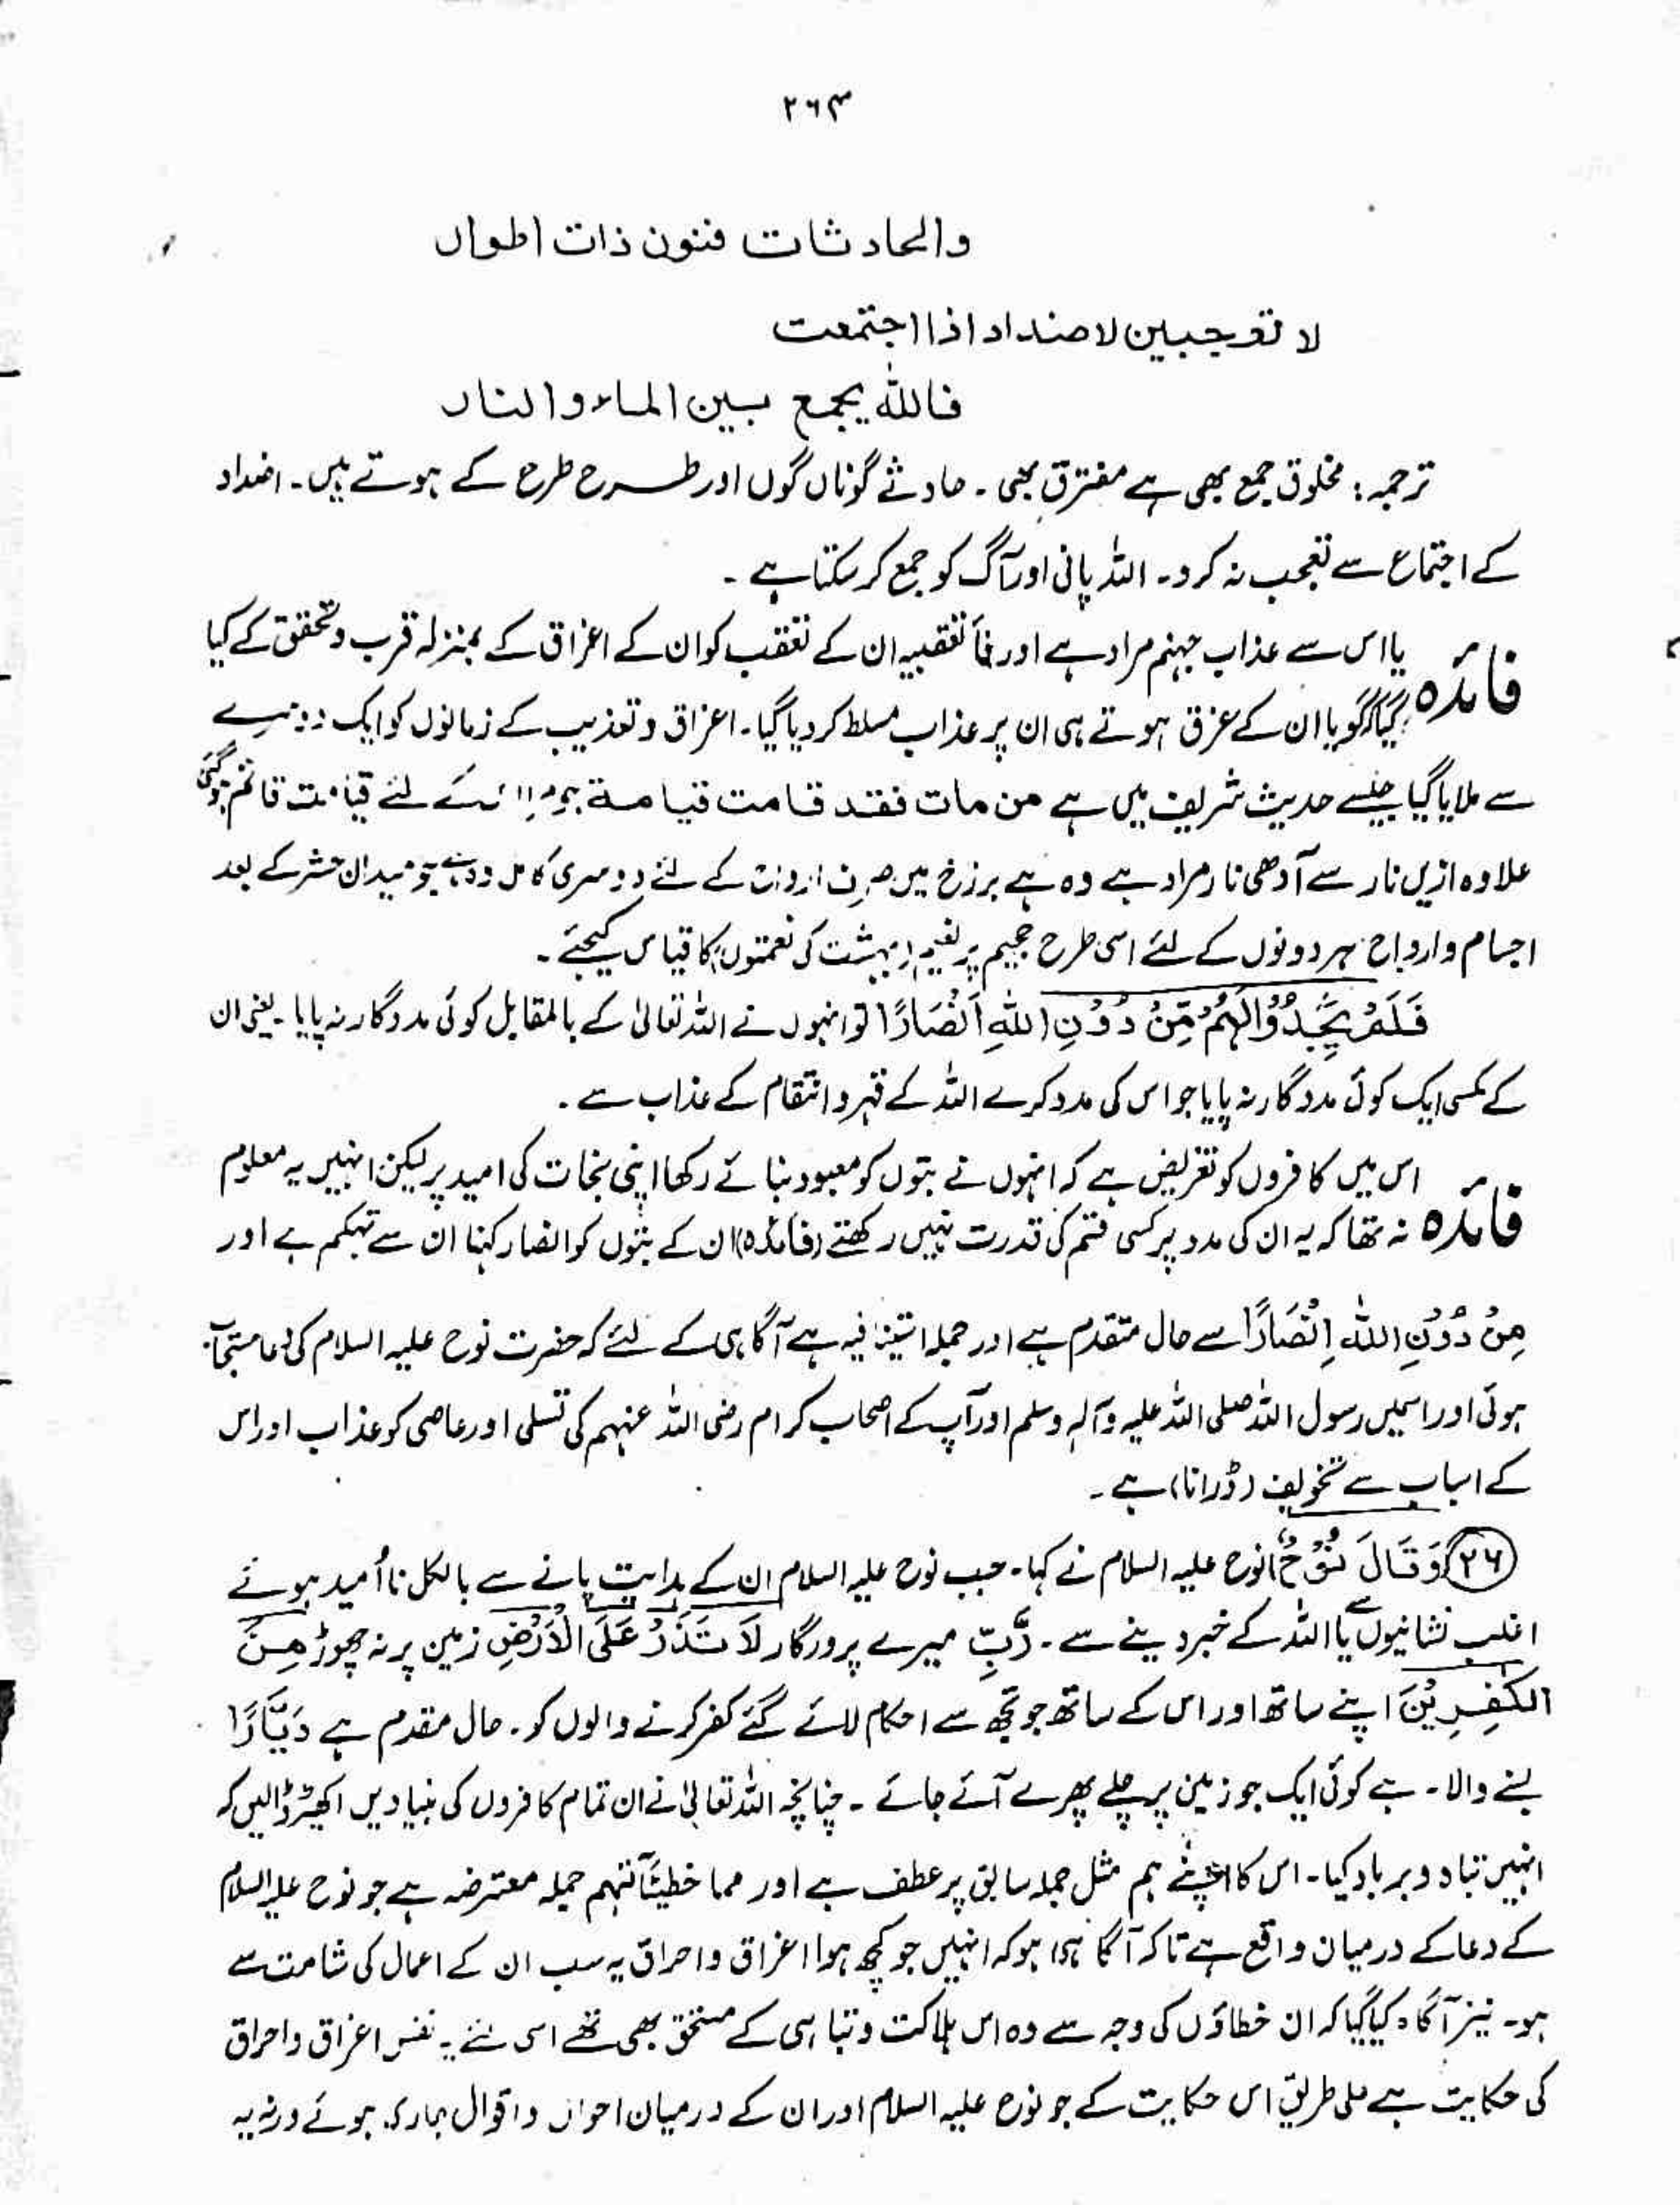 ۲۶۳
والحادثات فنون ذات اطوار
لا تعجبین لاضداد اذا اجتمعت
فاللہ یجمع بین الماء والنار
ترجمہ: مخلوق جمع بھی ہے مفترق بھی۔ حادثے گوناں گوں اور طرح طرح کے ہوتے ہیں۔ اضداد
کے اجتماع سے تعجب نہ کرو۔ اللہ پانی اور آگ کو جمع کر سکتا ہے۔
فائدہ یا اس سے عذاب جہنم مراد ہے اور فاء تعقیبیہ ان کے تعقب کو ان کے اغراق کے بمنزلہ قرب و تحقق کے کیا
گیا گویا ان کے غرق ہوتے ہی ان پر عذاب مسلط کر دیا گیا۔ اغراق و تعذیب کے زمانوں کو ایک دوسرے
سے ملایا گیا جیسے حدیث شریف میں ہے من مات فقد قامت قیامۃ جو مرا اس کے لئے قیامت قائم ہو گئی
علاوہ ازیں نار سے آدھی نار مراد ہے وہ ہے برزخ میں صرف ارواح کے لئے دوسری کامل وہ ہے جو میدان حشر کے بعد
اجسام و ارواح ہر دونوں کے لئے اسی طرح جحیم پر نعیم (بہشت کی نعمتوں) کا قیاس کیجئے۔
فَلَمْ یَجِدُوْا لَہُمْ مِّنْ دُوْنِ اللہِ اَنْصَارًا تو انہوں نے اللہ تعالیٰ کے بالمقابل کوئی مددگار نہ پایا یعنی ان
کے کسی ایک کوئی مددگار نہ پایا جو اس کی مدد کرے اللہ کے قہر و انتقام کے عذاب سے۔
فائدہ اس میں کافروں کو تعریض ہے کہ انہوں نے بتوں کو معبود بنائے رکھا اپنی نجات کی امید پر لیکن انہیں یہ معلوم
نہ تھا کہ یہ ان کی مدد پر کسی قسم کی قدرت نہیں رکھتے (فائدہ) ان کے بتوں کو انصار کہنا ان سے تہکم ہے اور
مِنْ دُوْنِ اللہِ اَنْصَارًا سے حال متقدم ہے اور جملہ استینافیہ ہے آگاہی کے لئے کہ حضرت نوح علیہ السلام کی دعا مستجاب
ہوئی اور اسمیں رسول اللہ صلی اللہ علیہ وآلہ وسلم اور آپ کے اصحاب کرام رضی اللہ عنہم کی تسلی اور عاصی کو عذاب اور اس
کے اسباب سے تخویف (ڈرانا) ہے۔
(۲۶) وَقَالَ نُوْحٌ نوح علیہ السلام نے کہا۔ جب نوح علیہ السلام ان کے ہدایت پانے سے بالکل نا اُمید ہوئے
اغلب نشانیوں سے یا اللہ کے خبر دینے سے۔ رَّبِّ میرے پرورگار لَا تَذَرْ عَلَی الْاَرْضِ زمین پر نہ چھوڑ مِنَ
الْکٰفِرِیْنَ اپنے ساتھ اور اس کے ساتھ جو تجھ سے احکام لائے گئے کفر کرنے والوں کو۔ حال مقدم ہے دَیَّارًا
بسنے والا۔ ہے کوئی ایک جو زمین پر چلے پھرے آئے جائے۔ چنانچہ اللہ تعالیٰ نے ان تمام کافروں کی بنیادیں اکھیڑ ڈالیں کہ
انہیں تباہ و برباد کیا۔ اس کا اپنے ہم مثل جملہ سابق پر عطف ہے اور مما خطیئاتہم جملہ معترضہ ہے جو نوح علیہ السلام
کے دعا کے درمیان واقع ہے تاکہ آگاہی ہو کہ انہیں جو کچھ ہوا اغراق و احراق یہ سب ان کے اعمال کی شامت سے
ہو۔ نیز آگاہ کیا گیا کہ ان خطاؤں کی وجہ سے وہ اس ہلاکت و تباہی کے مستحق بھی تھے اسی لئے یہ نفس اغراق و احراق
کی حکایت ہے علی طریق اس حکایت کے جو نوح علیہ السلام اور ان کے درمیان احوال و اقوال جاری ہوئے ورنہ یہ